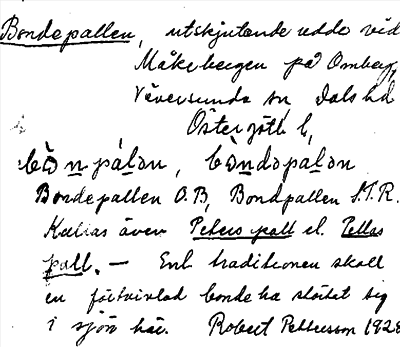 Bondepallen, utskjutande udde vid
Måkebergen på Omberg,
Väversunda sn, Dals hd
Östergötl. l,
bòn pàlən, bòndəpalən
Bondepallen O.B, Bondpallen S.T.R.
Kallas även Peters pall el. Pelles
pall. — Enl. traditionen skall
en förtvivlad bonde ha störtat sig
i sjön här. Robert Pettersson 1928